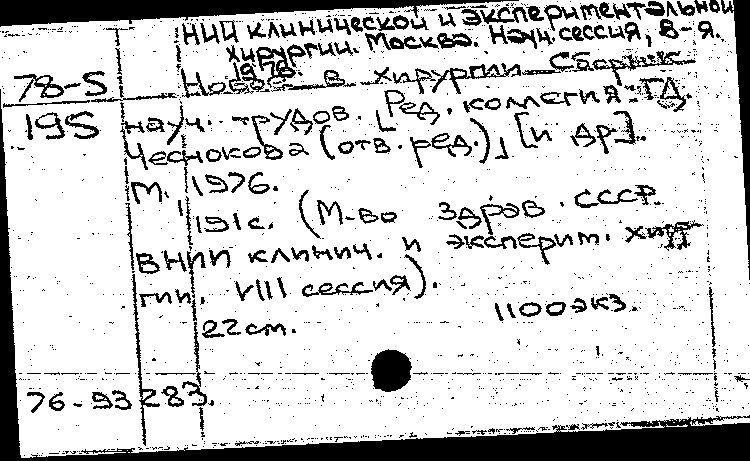 НИИ клинической и экспериментальной
хирургии. Москва. Науч. сессия, 8-я.
1976.
78-5 Новое в хирургии Сборник
195 науч. трудов. [Ред. коллегия: Т.Д.
Чеснокова (отв. ред.), [и др.].
М., 1976.
191с. (М-во здрав. СССР.
ВНИИ клинич. и эксперим. хирур
гии. VIII сессия).
22см. 1100экз.
76-93283.